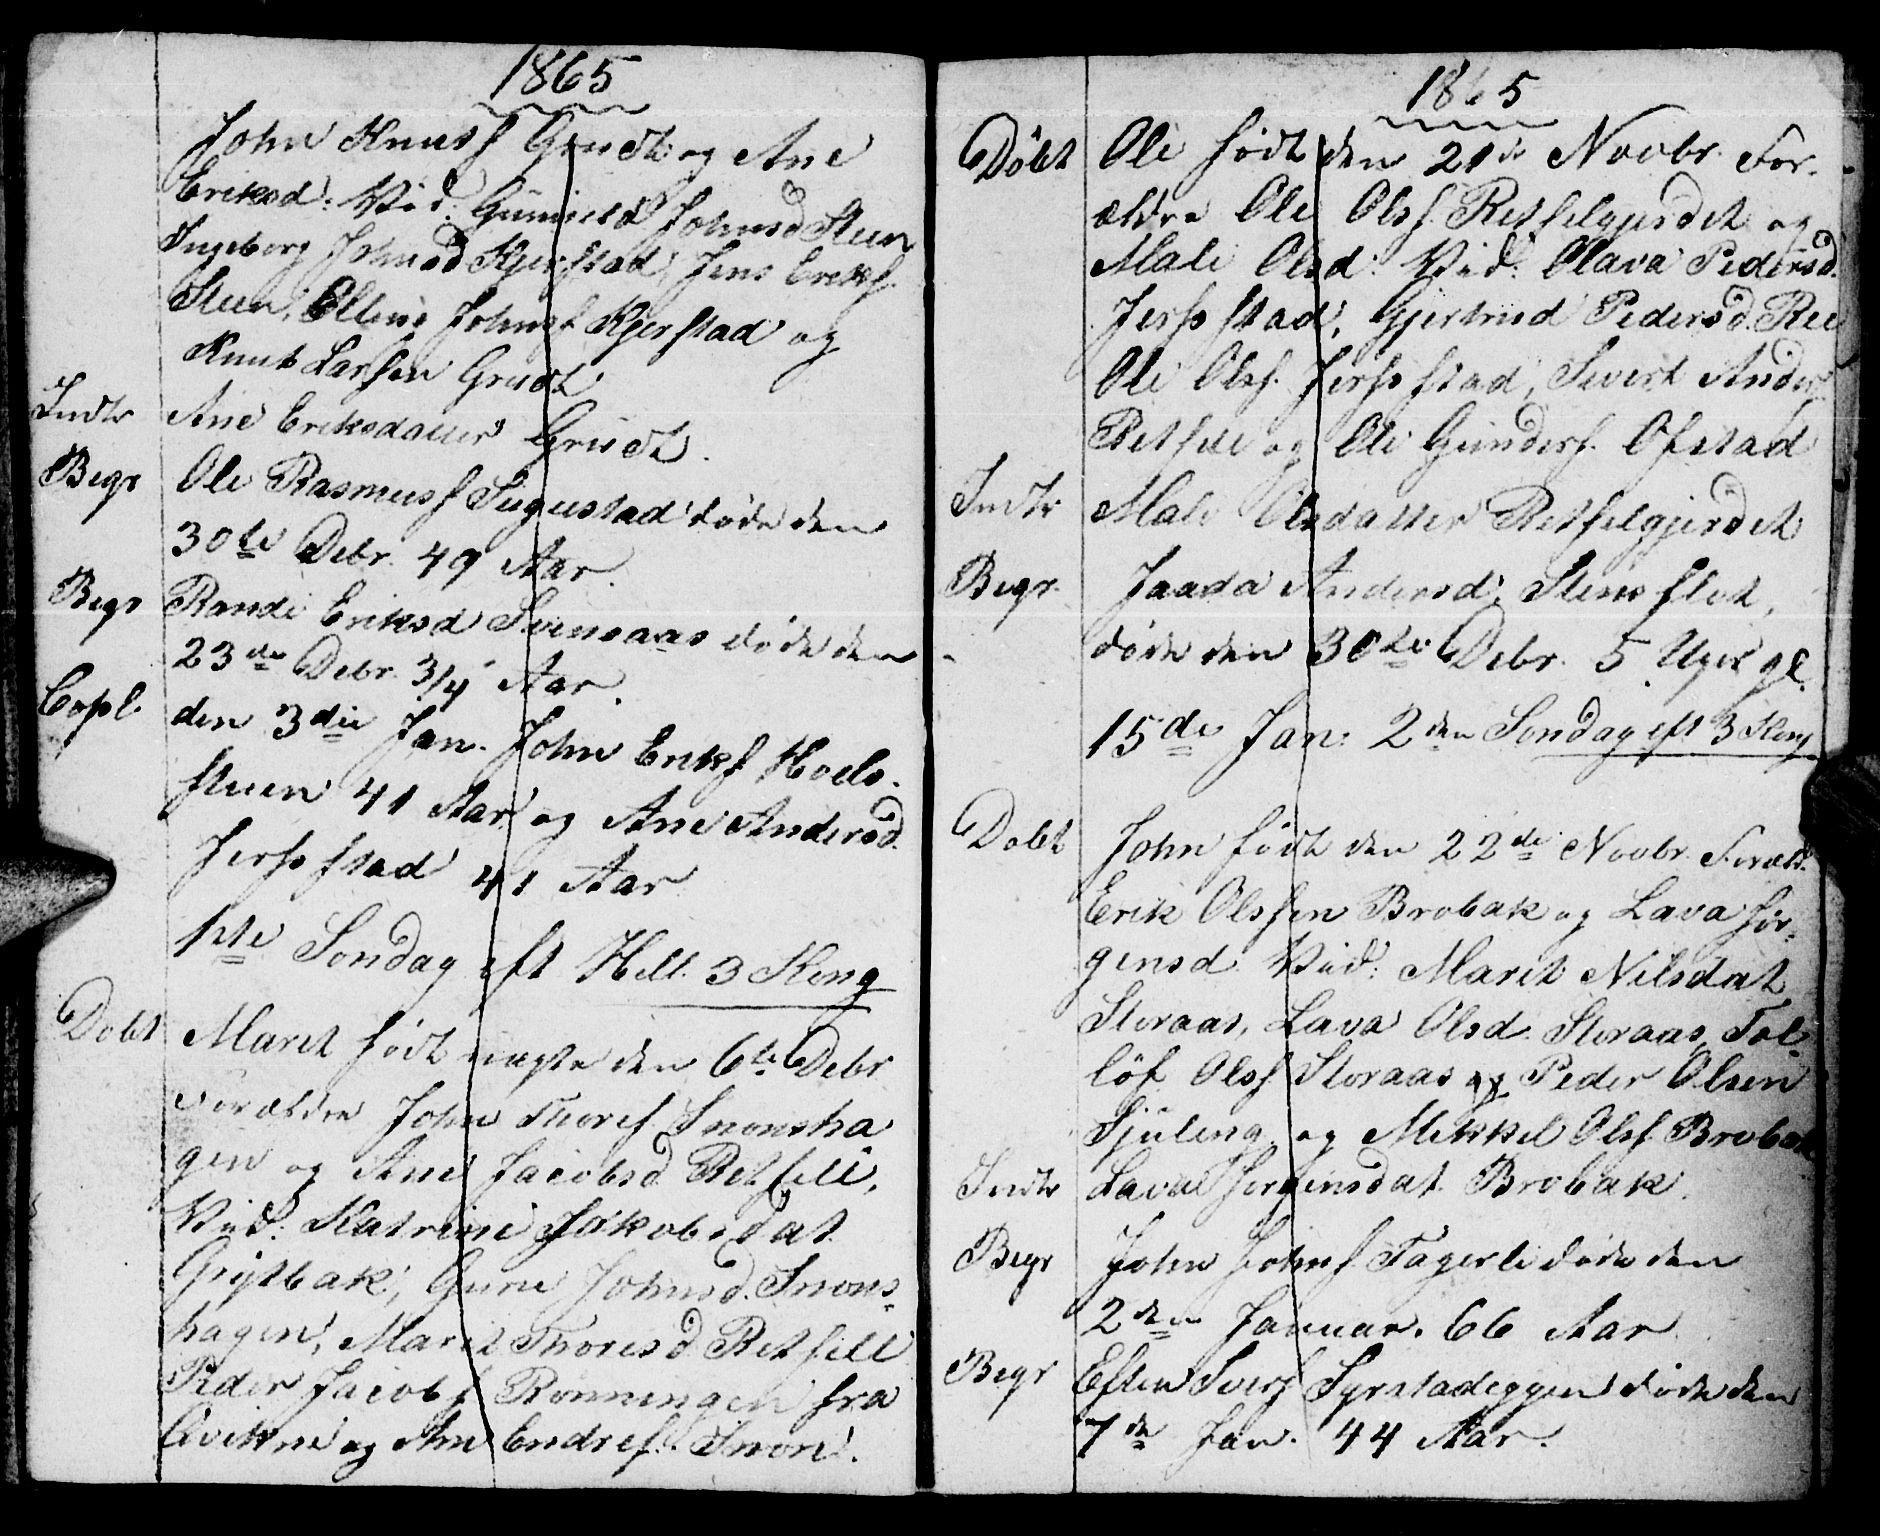 1865
John Knuss Grudt og Ane
Eriksd: Vid: Gunnild Johnsd Steen
Ingeborg Johnsd Kjerstad, Jens Eriks
Steen, Elling Johns Kjerstad og
Knut Larsen Grudt
Indt Ane Eriksdatter Grudt.
Begr Ole Rasmuss døde den
30te Debr. 49 Aar.
Begr Randi Eriksd Svensaas døde den
23de Debr. 3/4 Aar.
Copl. den 3die Jan. John Eriks Hoels-
stuen 41 Aar og Ane Andersd.
Jerpstad 41 Aar
1ste Sondag eft Hell. 3 Kong
Dobt Maret født den 6te Debr
Forældre John Thores Snoensha
gen og Ane Jacobsd Retfell,
Vid: Katrine Jakobsdat
Grytbak, Guru Johnsd. Snoens-
hagen, Maret Thoresd Retfell
Peder Jacobs Rønningen fra
Qvikne og Endres. Snoen.
1865
Døbt Ole født den 21de Novbr. For-
ældre Ole Ols Retfelgjerdet og
Mali Olsd: Vid: Olava Pedersd.
Jerpstad, Gjertrud Pedersd. Ree
Ole Ols. Jerpstad, Sivert Anders
Retfell og Ole Gunders. Ofstad
Indt Mali Olsdatter Retfelgjerdet
Begr. Andersd: Stensflet,
døde den 30te Debr. 5 Uger gl.
15de Jan: 2den Sondag eft 3 Kong
Dobt John født den 22de Novbr. Foræld.
Erik Olssen Brobak og Lava Jør-
gensd. Vid: Marit Nilsdat
Storaas, Lava Olsd. Storaas, Tol-
løf Ols Storaas og Peder Olsen
Sjuleng, og Mikkel Ols. Brobak
Indt Lava Jørgensdat. Brobak.
Begr John Johns Fagerli døde den
2den Januar. 66 Aar
Begr Esten Syrstadeggen døde den
7de Jan. 44 Aar.